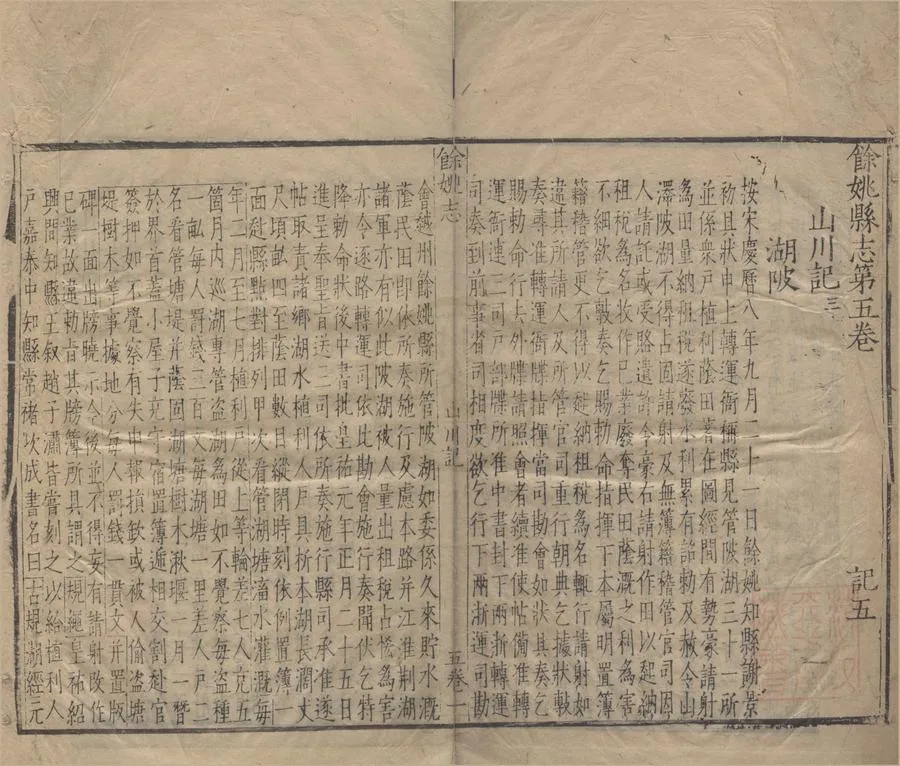 餘姚縣志第五卷　記五
山川記三
湖陂
按宋慶曆八年九月二十一日餘姚知縣謝景
初具狀申上轉運衙稱縣見管陂湖三十一所
並係衆戶植利蔭田著在圖經間有勢豪請射
為田量納租稅遂致廢水利累有詔勅及赦令山
澤陂湖不得占固請射及無簿籍稽管官司因
人請託或受賂遺許令豪右請射作田以起納
租稅為名收作已業廢奪民田蔭溉之利為害
不細欲乞敷奏乞賜勅命指揮下本屬明置簿
籍稽管更不得以起納租稅為名輒行請射如
違其所請人及所管官司重行朝典乞據狀敷
奏尋准轉運衙牒指揮當司勘會如狀具奏乞
賜勅命行去外牒請照會者續准使帖備准轉
運衙連二司戶部牒所准中書封下兩浙轉運
司奏到前事省司相度欲乞行下兩浙運司勘
會越州餘姚縣所管陂湖如委係久來貯水溉
蔭民田即依所奏施行及慮本路并江淮荊湖
諸軍亦有似此陂湖被人量出租稅占恡為害
亦令逐路轉運司依此勘會施行奏聞伏乞特
降勅命狀後中書批皇祐元年正月二十五日
進呈奉聖旨送三司依所奏施行縣司承准遂
帖取責諸鄉湖水植利人戶析所本湖長濶丈
尺頃畝四至蔭田數目縱閉時刻依例置簿一
面赴縣點對排列甲次看管湖塘濇水灌溉每
年二月至七月植利戶從上等輪差七人充五
箇月內巡湖專一看盜湖田如不覺察每人戶種
一畝每人罰錢三百文每湖塘一里差人戶二
名看管塘堤并蔭固湖塘樹木湫堰一月一替
於界首蓋小屋子充守宿置簿遞相交割赴官
簽押如不覺察有失申報損欵或被人偷盜塘
堤樹木等事據地分每人罰錢一貫文并置版
碑一面出牓曉示今後並不得妄有請射改作
已業故違勅旨其牓簿所具謂之規繩皇祐紹
興間知縣王敘趙子瀟皆嘗刻之以給植利人
戶嘉泰中知縣常褚次成書名曰古規湖經元
餘姚志　山川記　五卷　一